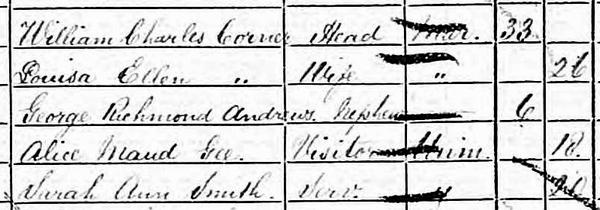 William Charles Corner Head Mar. 33
Louisa Ellen " Wife " 26
George Richmond Andrews. Nephew 6
Alice Maud Gee. Visitor Unm. 18.
Sarah Ann Smith. Serv. " 20